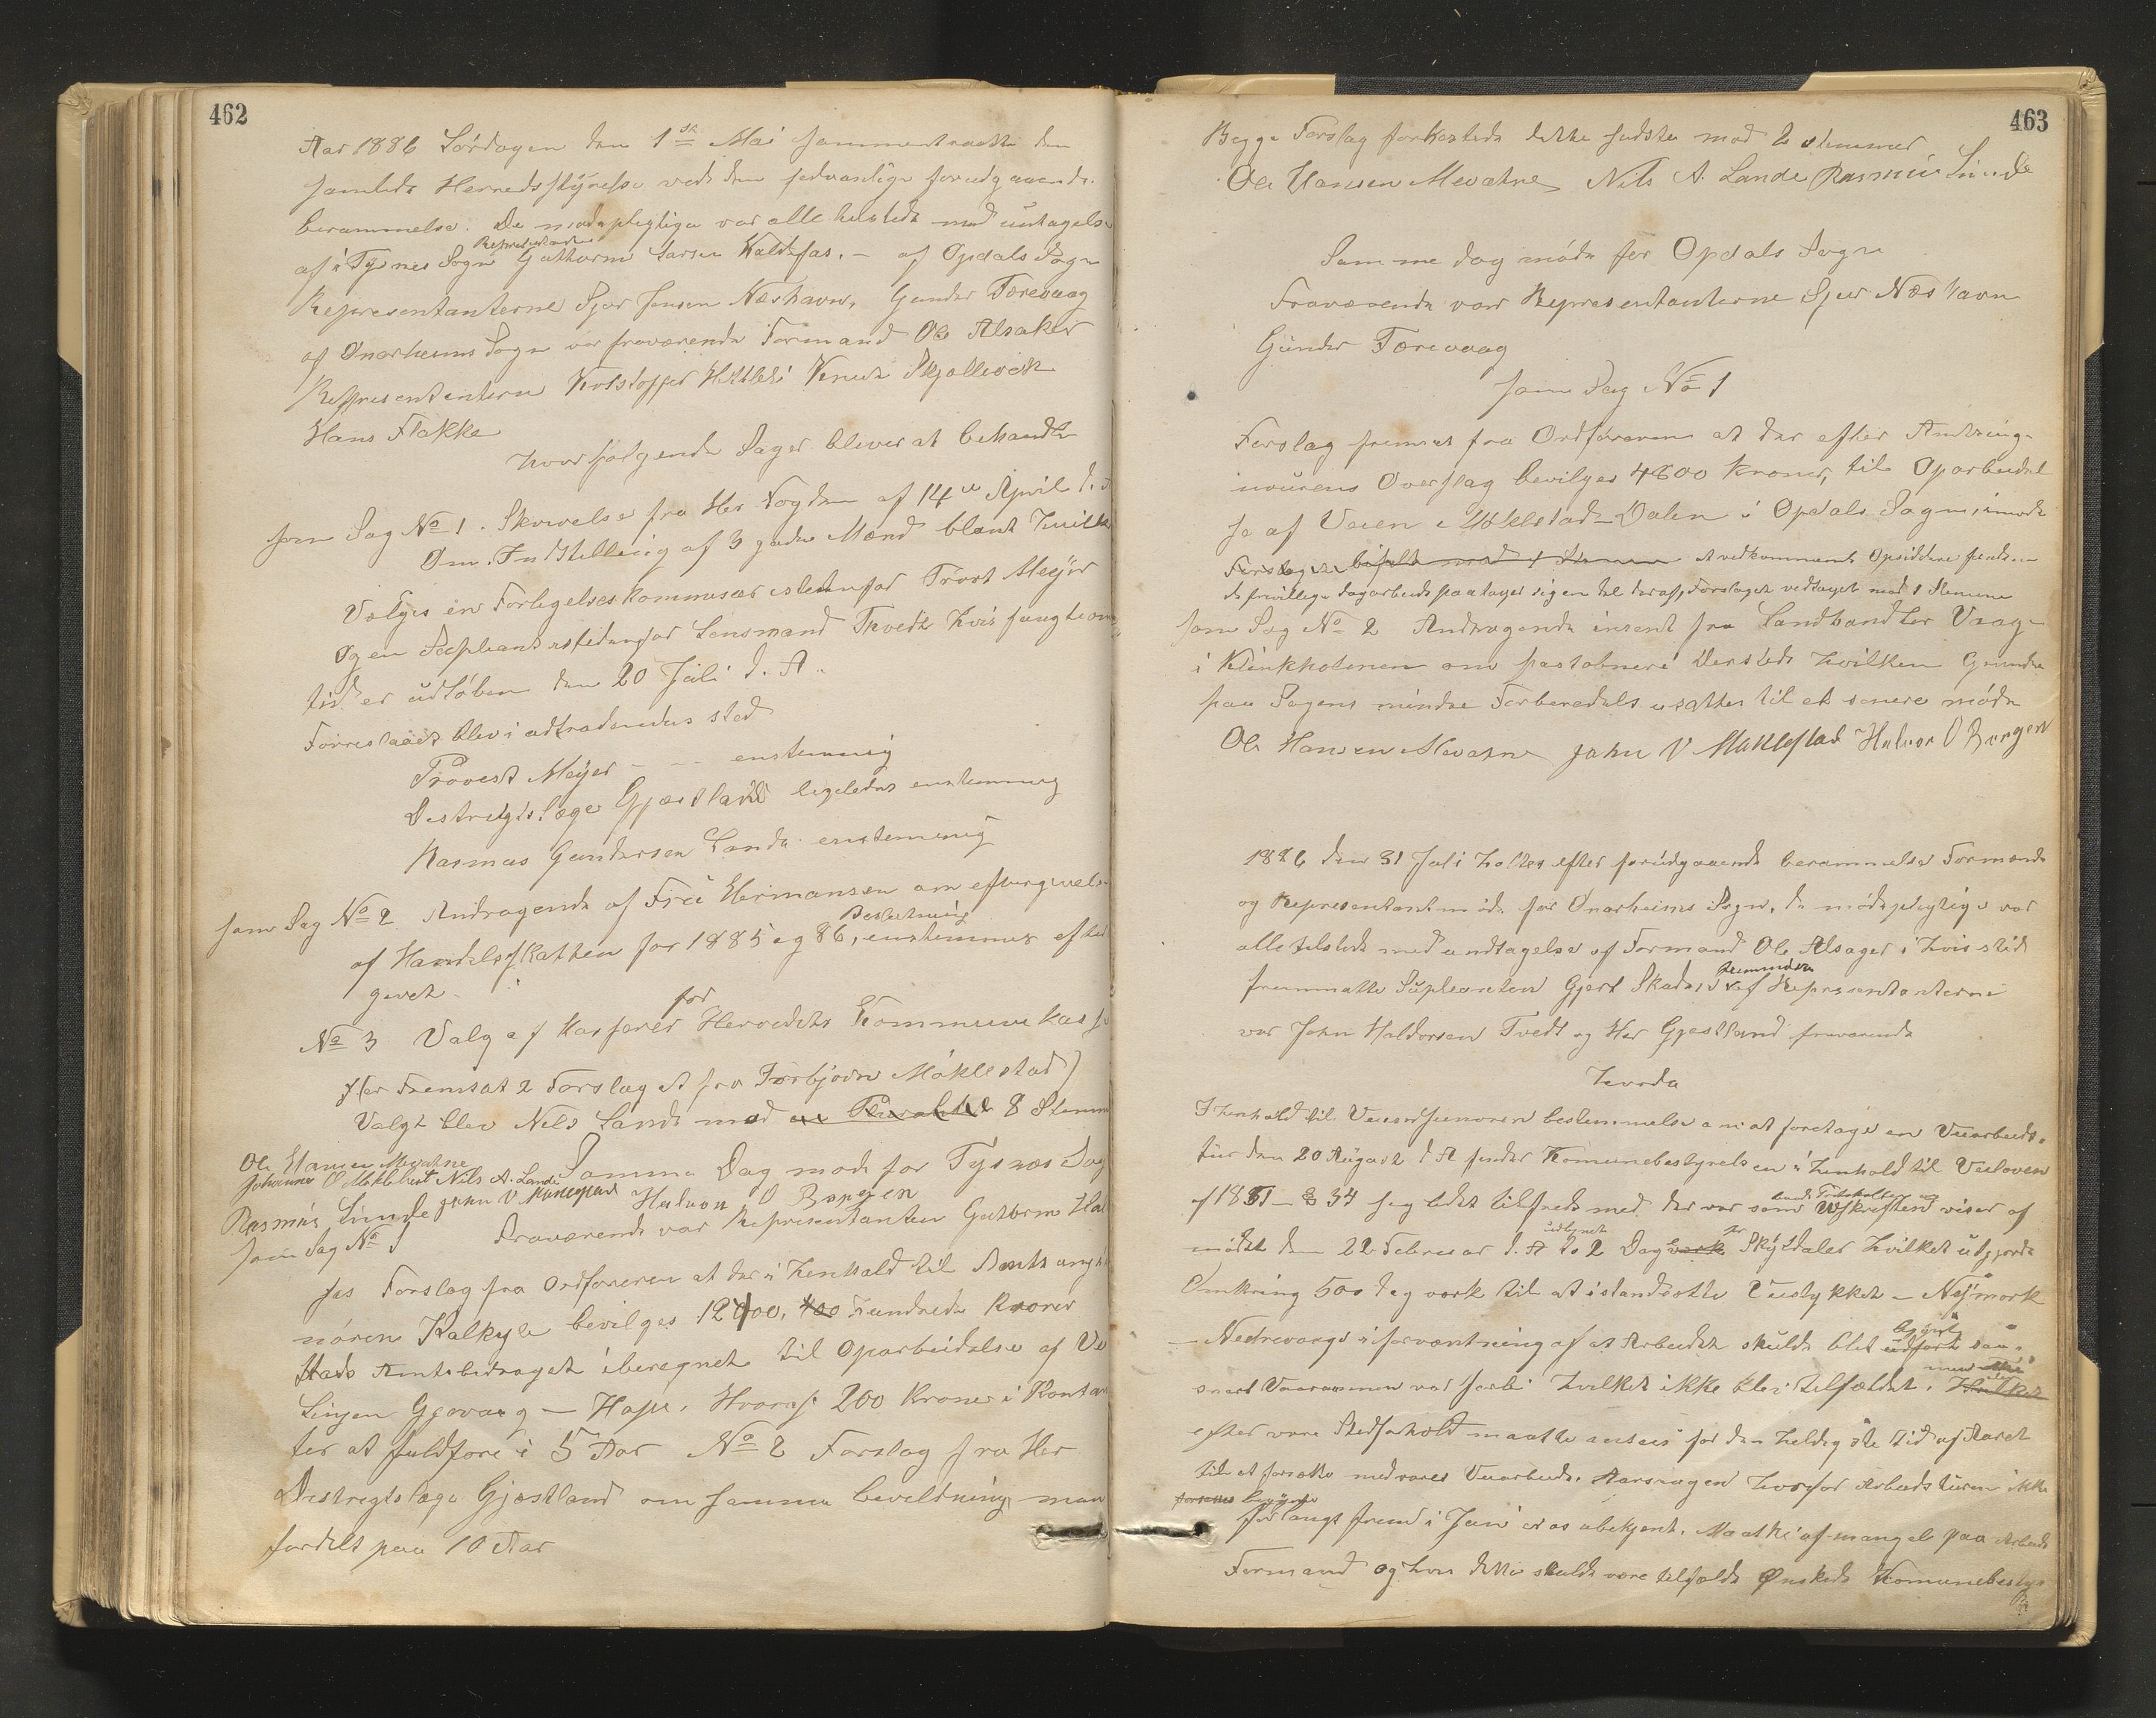 462
Aar 1886 Lördagen den 1ste Mai sammentraatte den
samlede Herredsstyrelse ved den sedvanlige forudgaaende
berammelse. De mødepligtige var alle tilstede med undtagelse
af i Tysnes Sogn Representanten Guthorm Larsen Kaldefos. – af Opdals Sogn
Representanterne Sjur Jensen Neshavn, Gunder Forevaag
af Onarheims Sogn var fraværende Formand Ole Alsaker
Representantene Kristoffer Hettleli Knut Skjellevik
Hans Flakke
hvor følgende Sager blever at behandle
som Sag No 1. Skrivelse fra Her Fogden af 14de April d. A
Om Indstilling af 3 gode Mænd blant hvilke
Vælges en Forligelseskommisær istedenfor Provst Meÿer
Og en Supleant istedenfor Lensmand Tvedt hvis fungtions
tid er udløben den 20 Juli d. A.
Forreslaaet blev i udtrædendes sted
Provest Meÿer – – – enstemmig
Destrigtslæge Gjæstland ligeledes enstemmig
Rasmus Gundersen Lande enstemmig
som Sag No 2 Andragende af Fru Hermansen om eftergivelse
af Handelsskatten for 1885 og 86, Beslutning enstemmes efter
givet.
No 3 Valg af Kasserer for Herredets Kommunekasse
Her Fremsat 2 Forslag et fra Torbjørn Møklestad)
Valgt blev Nels Lande med 8 Stemmer
Ole Hansen Mevatne
Johannes O Meklebust Nils A. Lande
Rasmus Linde John V Møklestad Halvor O Bergen
Samme Dag møde for Tysnæs Sogn
Fraværende var Representanten Guthorm Kal
som Sag No 1
Forslag fra Ordføreren at der i Henhold til Amtsingi
nøren Kalkyle bevilges 12400, hundrede Kroner
Amtsbidraget iberegnet til Oparbeidelse af Vei
Linjen Gjovaag – Hope. Hvoraf 200 Kroner i Kontan
ter at fuldføre i 5 Aar No 2 Forslag fra Her
Destrigtslæge Gjæstland om samme beveldning men
fordelt paa 10 Aar
463
Begge Forslag forkastede dette sidste mod 2 stemmer
Ole Hansen Mevatne Nils A. Lande Rasmus Linde
Samme dag møde for Opdals Sogn
Fraværende var Representanterne Sjur Neshavn
Gunder Forevaag
som Sag No 1
Forslag fremsat fra Ordføreren at der efter Amtsinge
niørens Overslag bevilges 4800 Kroner, til Oparbeidel
se af Veien i Møklestad-Dalen i Opdals Sogn, imod
Forslaget bifalt med 1 Stemme at vedkommende Opsiddere
de frivillige dagarbeide paatager sig en del deraf, Forslaget vedtaget mod 1 Stemme
som Sag No 2 Andragende insent fra Landhandler Vaage
i Klinkholmen om postabneri Dersteds hvilken Grundet
paa Sagens mindre Forberedelse utsattes til et senere møde
Ole Hansen Mevatne John V Møklestad Halvor O Bergen
1886 den 31 Juli holtes efter forudgaaende berammelse Formands
og Representantmøde for Onarheims Sogn, de mødepligtige var
alle tilstede med undtagelse af Formand Ole Alsager i hvis sted
fremmøtte Supleanten Gjert Skaden af Representanterne
var John Haldorsen Tvedt og Her Gjestland fraværende
hvorda
I henhold til Veiassistenteren bestemmelse om at foretage en Veiarbeids-
tur den 20 August d A finder Komunebestyrelsen i henhold til Veiloven
af 1851 – § 34 sig lidet tilfreds med der var som Udskriften viser af
mødet den 22 Februar d. A udlignet to 2 Dagsverk pr Skylddaler hvilket udgjorde
Omkring 500 dagverk til at istandsætte Veistykket – Nÿmork
– Nedrevaage i forventning af at Arbeidet skulde blet begynt saa-
snart Vaaraannen var forbi hvilket ikke blev tilfældet. Hvilket
efter vore Stedforhold maatte ansees for den heldigste Tid af Aaret
til at fortsætte med vores Veiarbeide. Aarsagen hvorfor Arbeidsturen ikke
forlangt frem i Juni er os ubekjent. Maaske af mangel paa Arbeids
Formand og hvis dette skulde være tilfælde Ønskede Komunebesty